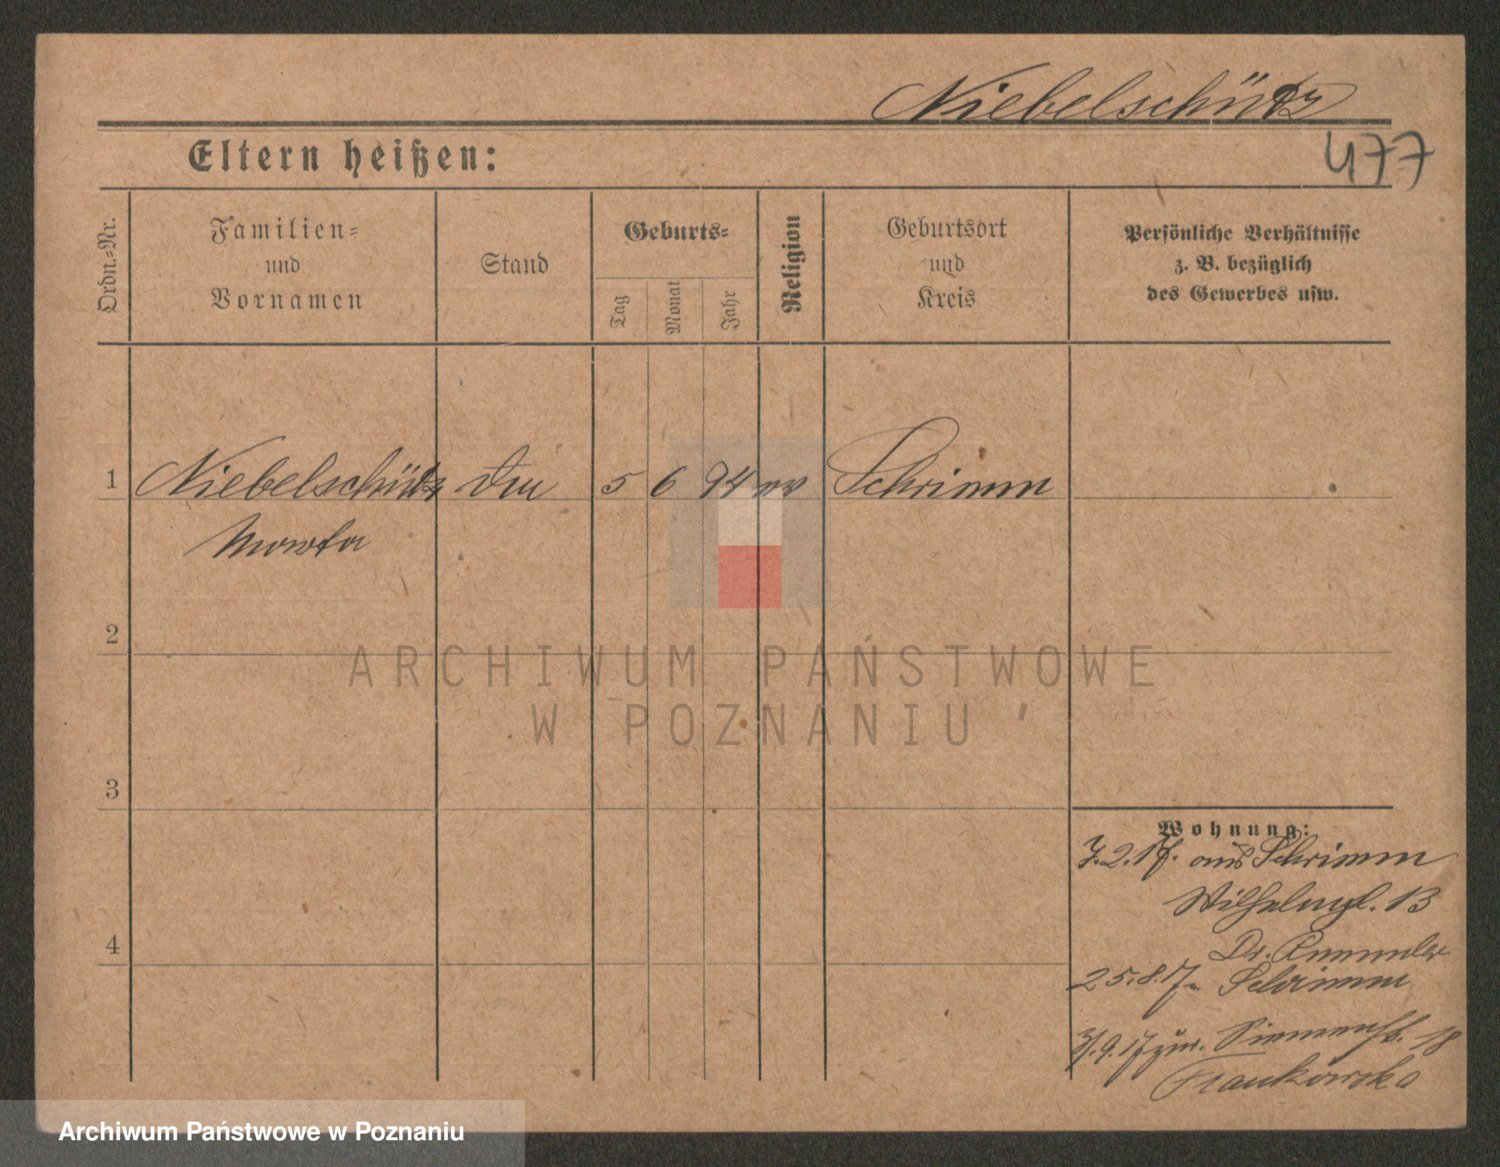 Niebelschütz
477
Eltern heißen:
Ordn.-Nr.
Familien-
und
Vornamen
Stand
Geburts-
Tag
Monat
Jahr
Religion
Geburtsort
und
Kreis
Persönliche Verhältnisse
z. B. bezüglich
des Gewerbes usw.
1 Niebelschütz 5 6 94 ev Schrimm
2
3
4
Wohnung:
7.2.17. aus Schrimm
13
Dr.
25.8.17 Schrimm
.9.17 zur. 18
Frankowska
ARCHIWUM PAŃSTWOWE
W POZNANIU
Archiwum Państwowe w Poznaniu